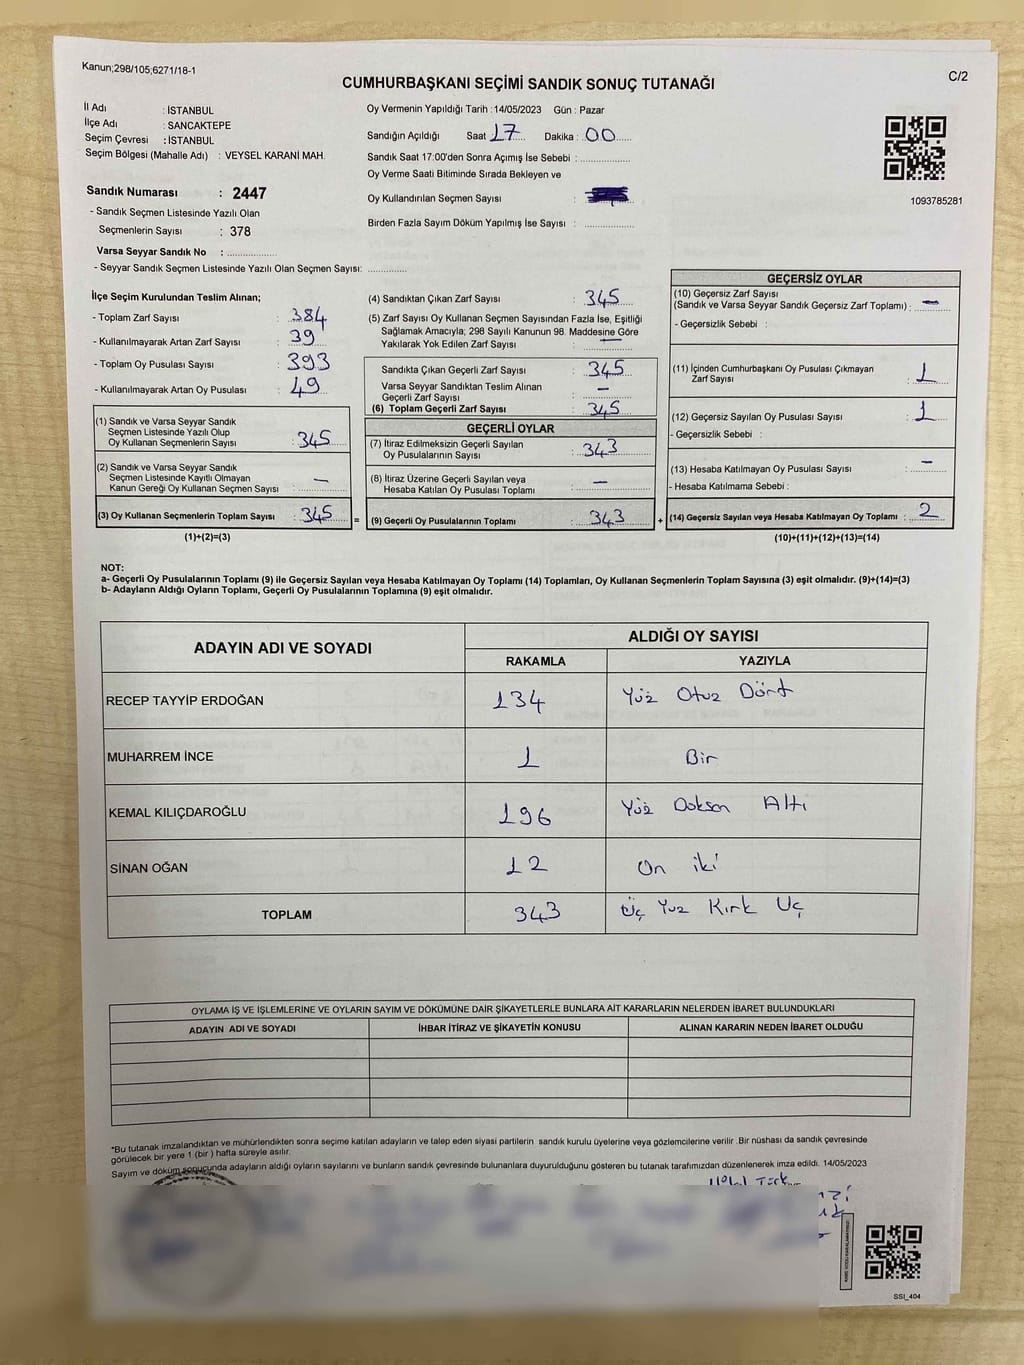 Kanun;298/105;6271/18-1
C/2
CUMHURBAŞKANI SEÇİMİ SANDIK SONUÇ TUTANAĞI
İl Adı : İSTANBUL
İlçe Adı : SANCAKTEPE
Seçim Çevresi : İSTANBUL
Seçim Bölgesi (Mahalle Adı) : VEYSEL KARANİ MAH.
Sandık Numarası : 2447
- Sandık Seçmen Listesinde Yazılı Olan
Seçmenlerin Sayısı : 378
Varsa Seyyar Sandık No : ................
- Seyyar Sandık Seçmen Listesinde Yazılı Olan Seçmen Sayısı: ............
Oy Vermenin Yapıldığı Tarih : 14/05/2023 Gün : Pazar
Sandığın Açıldığı Saat 17 Dakika : 00
Sandık Saat 17:00'den Sonra Açımış İse Sebebi : ................
Oy Verme Saati Bitiminde Sırada Bekleyen ve
Oy Kullandırılan Seçmen Sayısı :
Birden Fazla Sayım Döküm Yapılmış İse Sayısı : ................
1093785281
İlçe Seçim Kurulundan Teslim Alınan;
- Toplam Zarf Sayısı : 384
- Kullanılmayarak Artan Zarf Sayısı : 39
- Toplam Oy Pusulası Sayısı : 393
- Kullanılmayarak Artan Oy Pusulası : 49
(1) Sandık ve Varsa Seyyar Sandık
Seçmen Listesinde Yazılı Olup
Oy Kullanan Seçmenlerin Sayısı : 345
(2) Sandık ve Varsa Seyyar Sandık
Seçmen Listesinde Kayıtlı Olmayan
Kanun Gereği Oy Kullanan Seçmen Sayısı : —
(3) Oy Kullanan Seçmenlerin Toplam Sayısı : 345
(1)+(2)=(3)
(4) Sandıktan Çıkan Zarf Sayısı : 345
(5) Zarf Sayısı Oy Kullanan Seçmen Sayısından Fazla İse, Eşitliği
Sağlamak Amacıyla; 298 Sayılı Kanunun 98. Maddesine Göre
Yakılarak Yok Edilen Zarf Sayısı : —
Sandıkta Çıkan Geçerli Zarf Sayısı : 345
Varsa Seyyar Sandıktan Teslim Alınan
Geçerli Zarf Sayısı : —
(6) Toplam Geçerli Zarf Sayısı : 345
GEÇERLİ OYLAR
(7) İtiraz Edilmeksizin Geçerli Sayılan
Oy Pusulalarının Sayısı : 343
(8) İtiraz Üzerine Geçerli Sayılan veya
Hesaba Katılan Oy Pusulası Toplamı : —
= (9) Geçerli Oy Pusulalarının Toplamı : 343 +
GEÇERSİZ OYLAR
(10) Geçersiz Zarf Sayısı
(Sandık ve Varsa Seyyar Sandık Geçersiz Zarf Toplamı) : —
- Geçersizlik Sebebi :
(11) İçinden Cumhurbaşkanı Oy Pusulası Çıkmayan
Zarf Sayısı : 1
(12) Geçersiz Sayılan Oy Pusulası Sayısı : 1
- Geçersizlik Sebebi :
(13) Hesaba Katılmayan Oy Pusulası Sayısı : —
- Hesaba Katılmama Sebebi :
(14) Geçersiz Sayılan veya Hesaba Katılmayan Oy Toplamı : 2
(10)+(11)+(12)+(13)=(14)
NOT:
a- Geçerli Oy Pusulalarının Toplamı (9) ile Geçersiz Sayılan veya Hesaba Katılmayan Oy Toplamı (14) Toplamları, Oy Kullanan Seçmenlerin Toplam Sayısına (3) eşit olmalıdır. (9)+(14)=(3)
b- Adayların Aldığı Oyların Toplamı, Geçerli Oy Pusulalarının Toplamına (9) eşit olmalıdır.
ADAYIN ADI VE SOYADI ALDIĞI OY SAYISI
RAKAMLA YAZIYLA
RECEP TAYYİP ERDOĞAN 134 Yüz Otuz Dört
MUHARREM İNCE 1 Bir
KEMAL KILIÇDAROĞLU 196 Yüz Doksan Altı
SİNAN OĞAN 12 On iki
TOPLAM 343 Üç Yuz Kırk Üç
OYLAMA İŞ VE İŞLEMLERİNE VE OYLARIN SAYIM VE DÖKÜMÜNE DAİR ŞİKAYETLERLE BUNLARA AİT KARARLARIN NELERDEN İBARET BULUNDUKLARI
ADAYIN ADI VE SOYADI İHBAR İTİRAZ VE ŞİKAYETİN KONUSU ALINAN KARARIN NEDEN İBARET OLDUĞU
*Bu tutanak imzalandıktan ve mühürlendikten sonra seçime katılan adayların ve talep eden siyasi partilerin sandık kurulu üyelerine veya gözlemcilerine verilir .Bir nüshası da sandık çevresinde
görülecek bir yere 1 (bir ) hafta süreyle asılır.
Sayım ve döküm sonucunda adayların aldığı oyların sayılarını ve bunların sandık çevresinde bulunanlara duyurulduğunu gösteren bu tutanak tarafımızdan düzenlenerek imza edildi. 14/05/2023
SSI_404